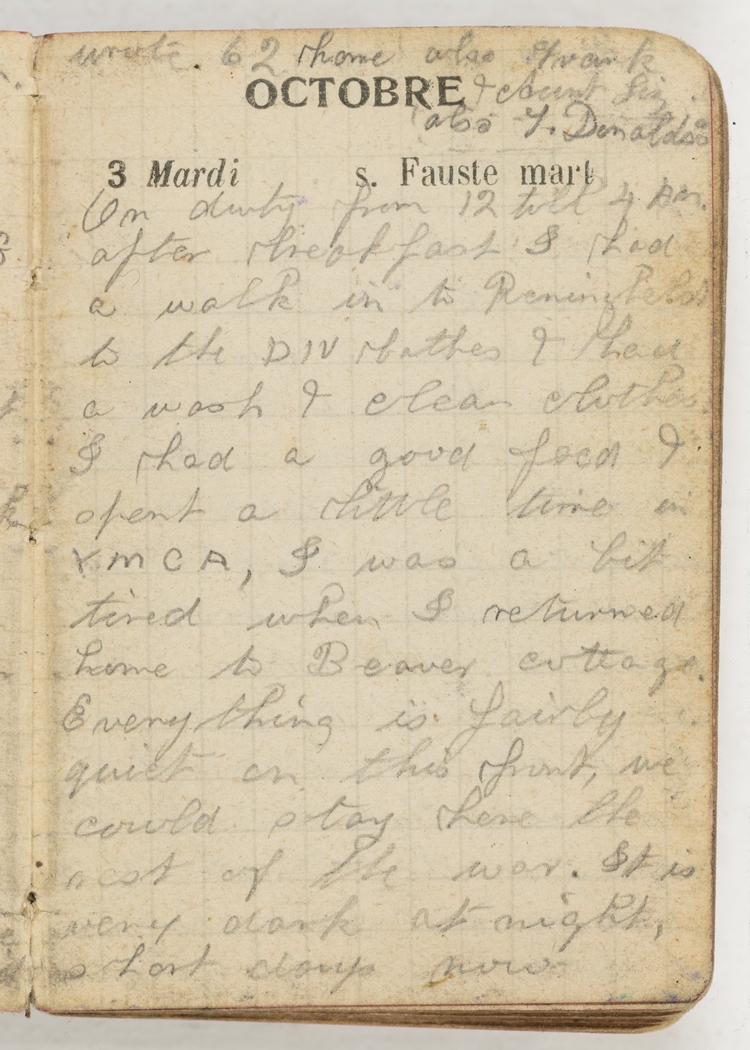 wrote 62 home also Frank
OCTOBRE & Aunt Liz
also T. Donaldson
3 Mardi s. Fauste mart
On duty from 12 till 4 Am.
after breakfast I had
a walk in to Reninghelst
to the DIV bathes & had
a wash & clean clothes.
I had a good feed &
spent a little time in
YMCA, I was a bit
tired when I returned
home to Beaver cottage.
Everything is fairly
quiet on this front, we
could stay here the
rest of the war. It is
very dark at night,
short days now